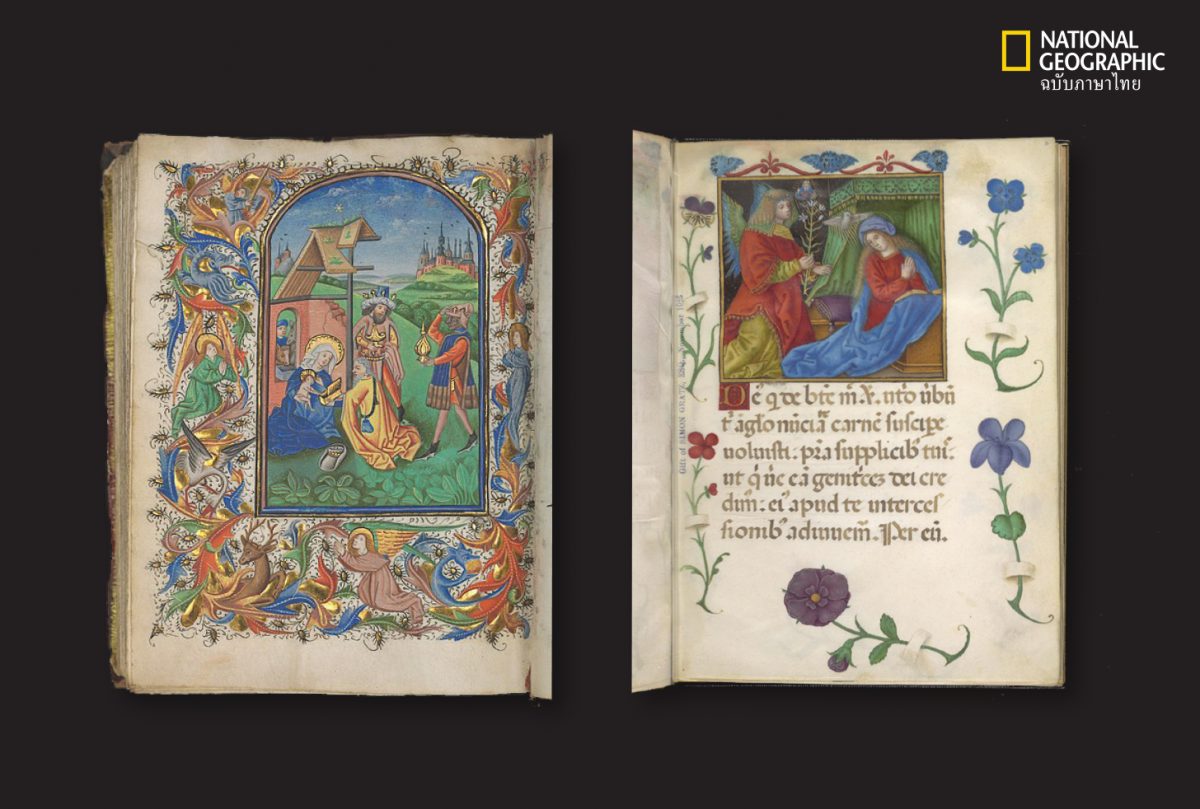 NATIONAL
GEOGRAPHIC
ฉบับภาษาไทย
Dē q̄ de btē m. v. uto ubū
t' āglo nūciā carnē suscipe
uoluisti. p̄ra supplicib' tui.
ut q' ue eā genitcē dei cre
dim': ei' apud te interces
sionib' adiuuem̄. Per eū.
Gift of SIMON GRATZ